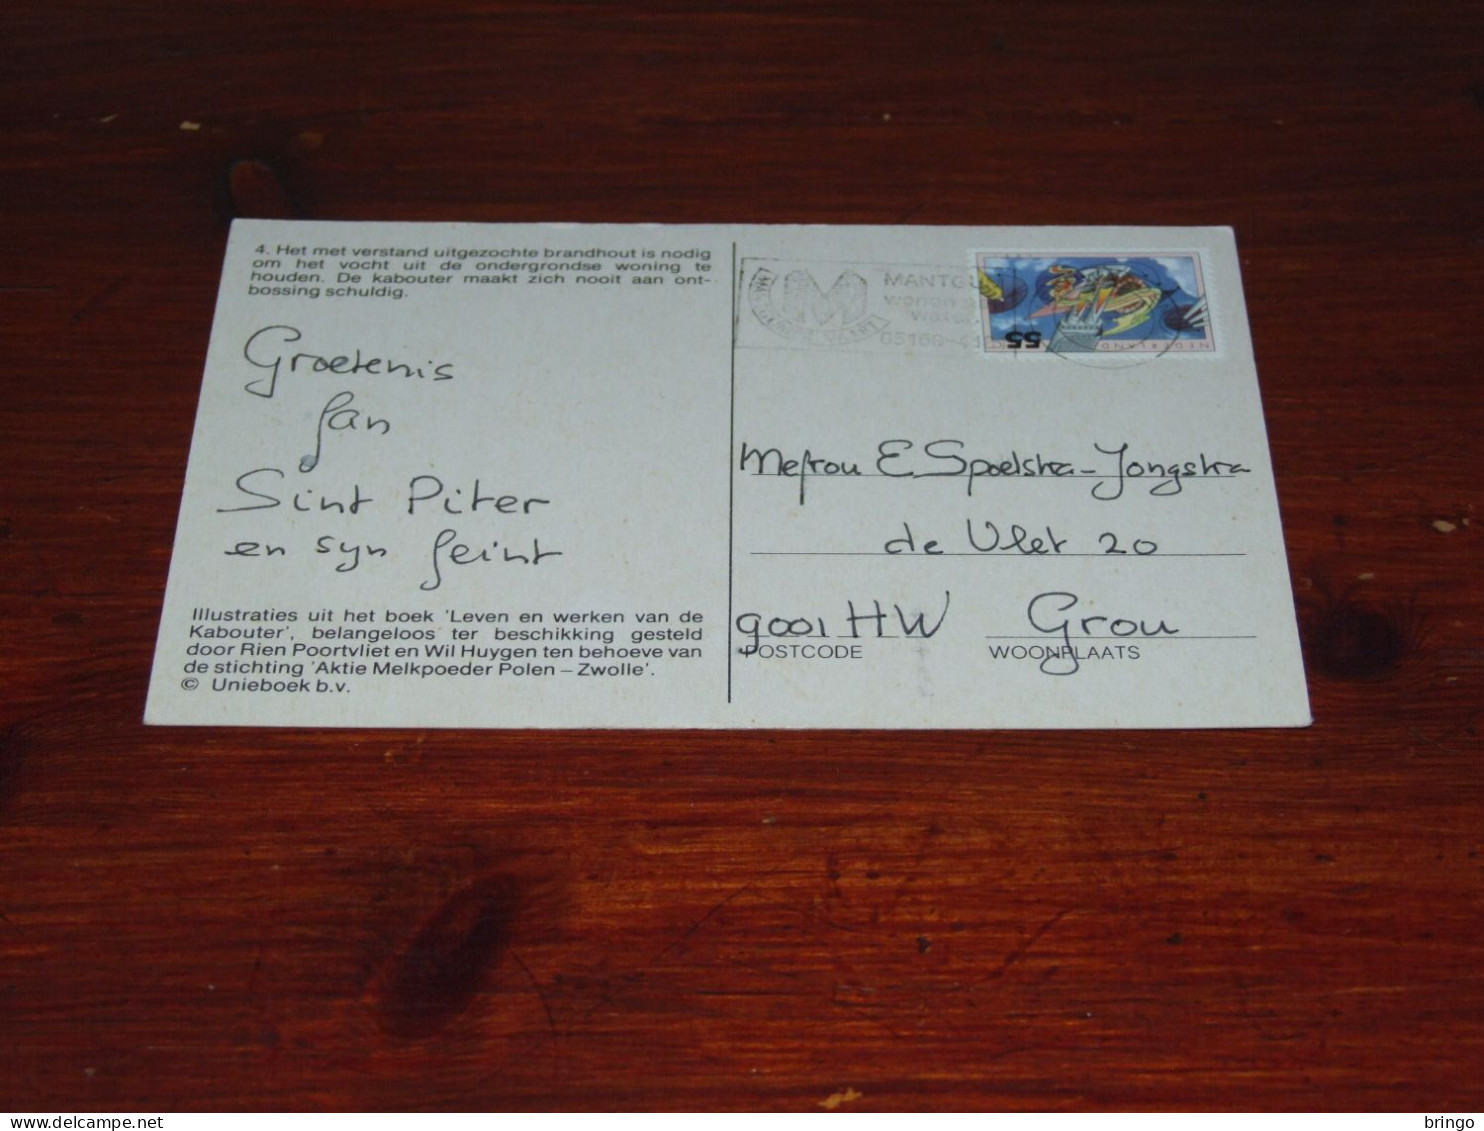 4. Het met verstand uitgezochte brandhout is nodig
om het vocht uit de ondergrondse woning te
houden. De kabouter maakt zich nooit aan ont-
bossing schuldig.
Groetenis
fan
Sint Piter
en syn feint
Illustraties uit het boek 'Leven en werken van de
Kabouter', belangeloos ter beschikking gesteld
door Rien Poortvliet en Wil Huygen ten behoeve van
de stichting 'Aktie Melkpoeder Polen – Zwolle'.
© Unieboek b.v.
55
NEDERLAND
Mefrou E Spoelstra-Jongstra
de Vlet 20
9001 HW Grou
POSTCODE WOONPLAATS
bringo